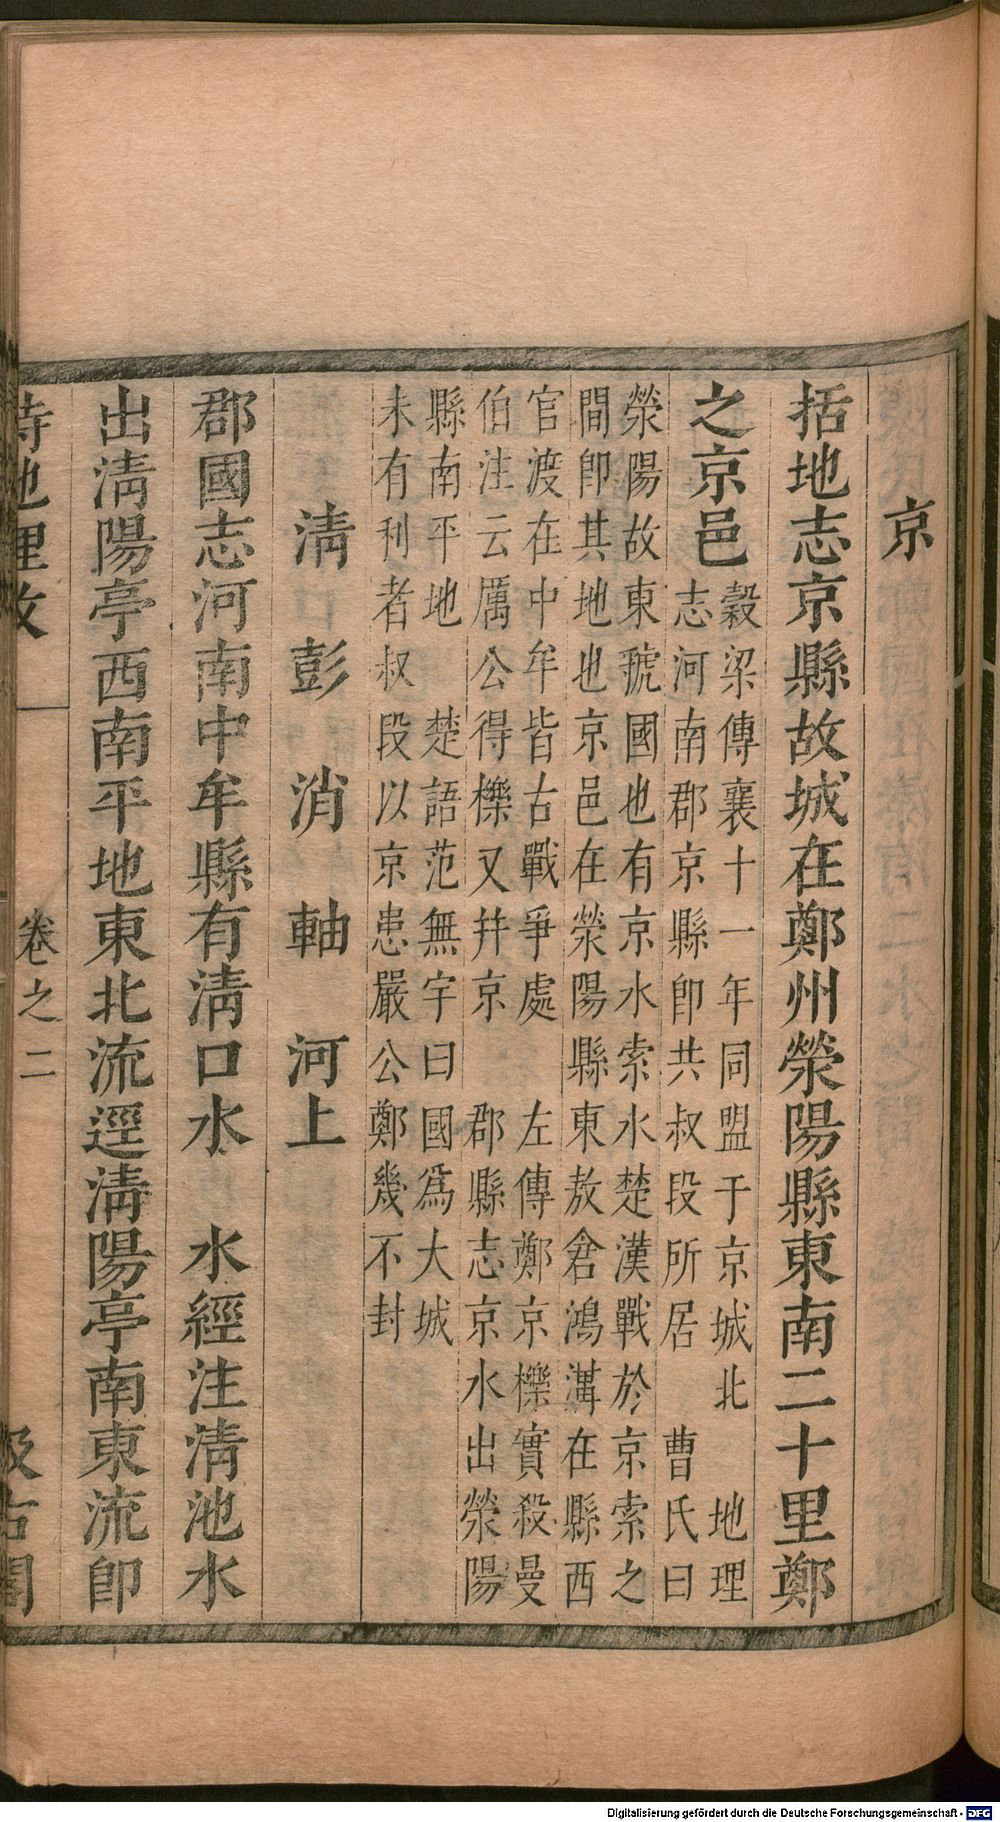 京
括地志京縣故城在鄭州滎陽縣東南二十里鄭
之京邑
穀梁傳襄十一年同盟于京城北　地理
志河南郡京縣即共叔段所居　曹氏曰
滎陽故東虢國也有京水索水楚漢戰於京索之
間即其地也京邑在滎陽縣東敖倉鴻溝在縣西
官渡在中牟皆古戰爭處　左傳鄭京櫟實殺曼
伯注云厲公得櫟又并京　郡縣志京水出滎陽
縣南平地　楚語范無宇曰國爲大城
未有利者叔段以京患嚴公鄭幾不封
清　彭　消　軸　河上
郡國志河南中牟縣有清口水　水經注清池水
出清陽亭西南平地東北流逕清陽亭南東流即
詩地理攷　卷之二　汲古閣
Digitalisierung gefördert durch die Deutsche Forschungsgemeinschaft - DFG